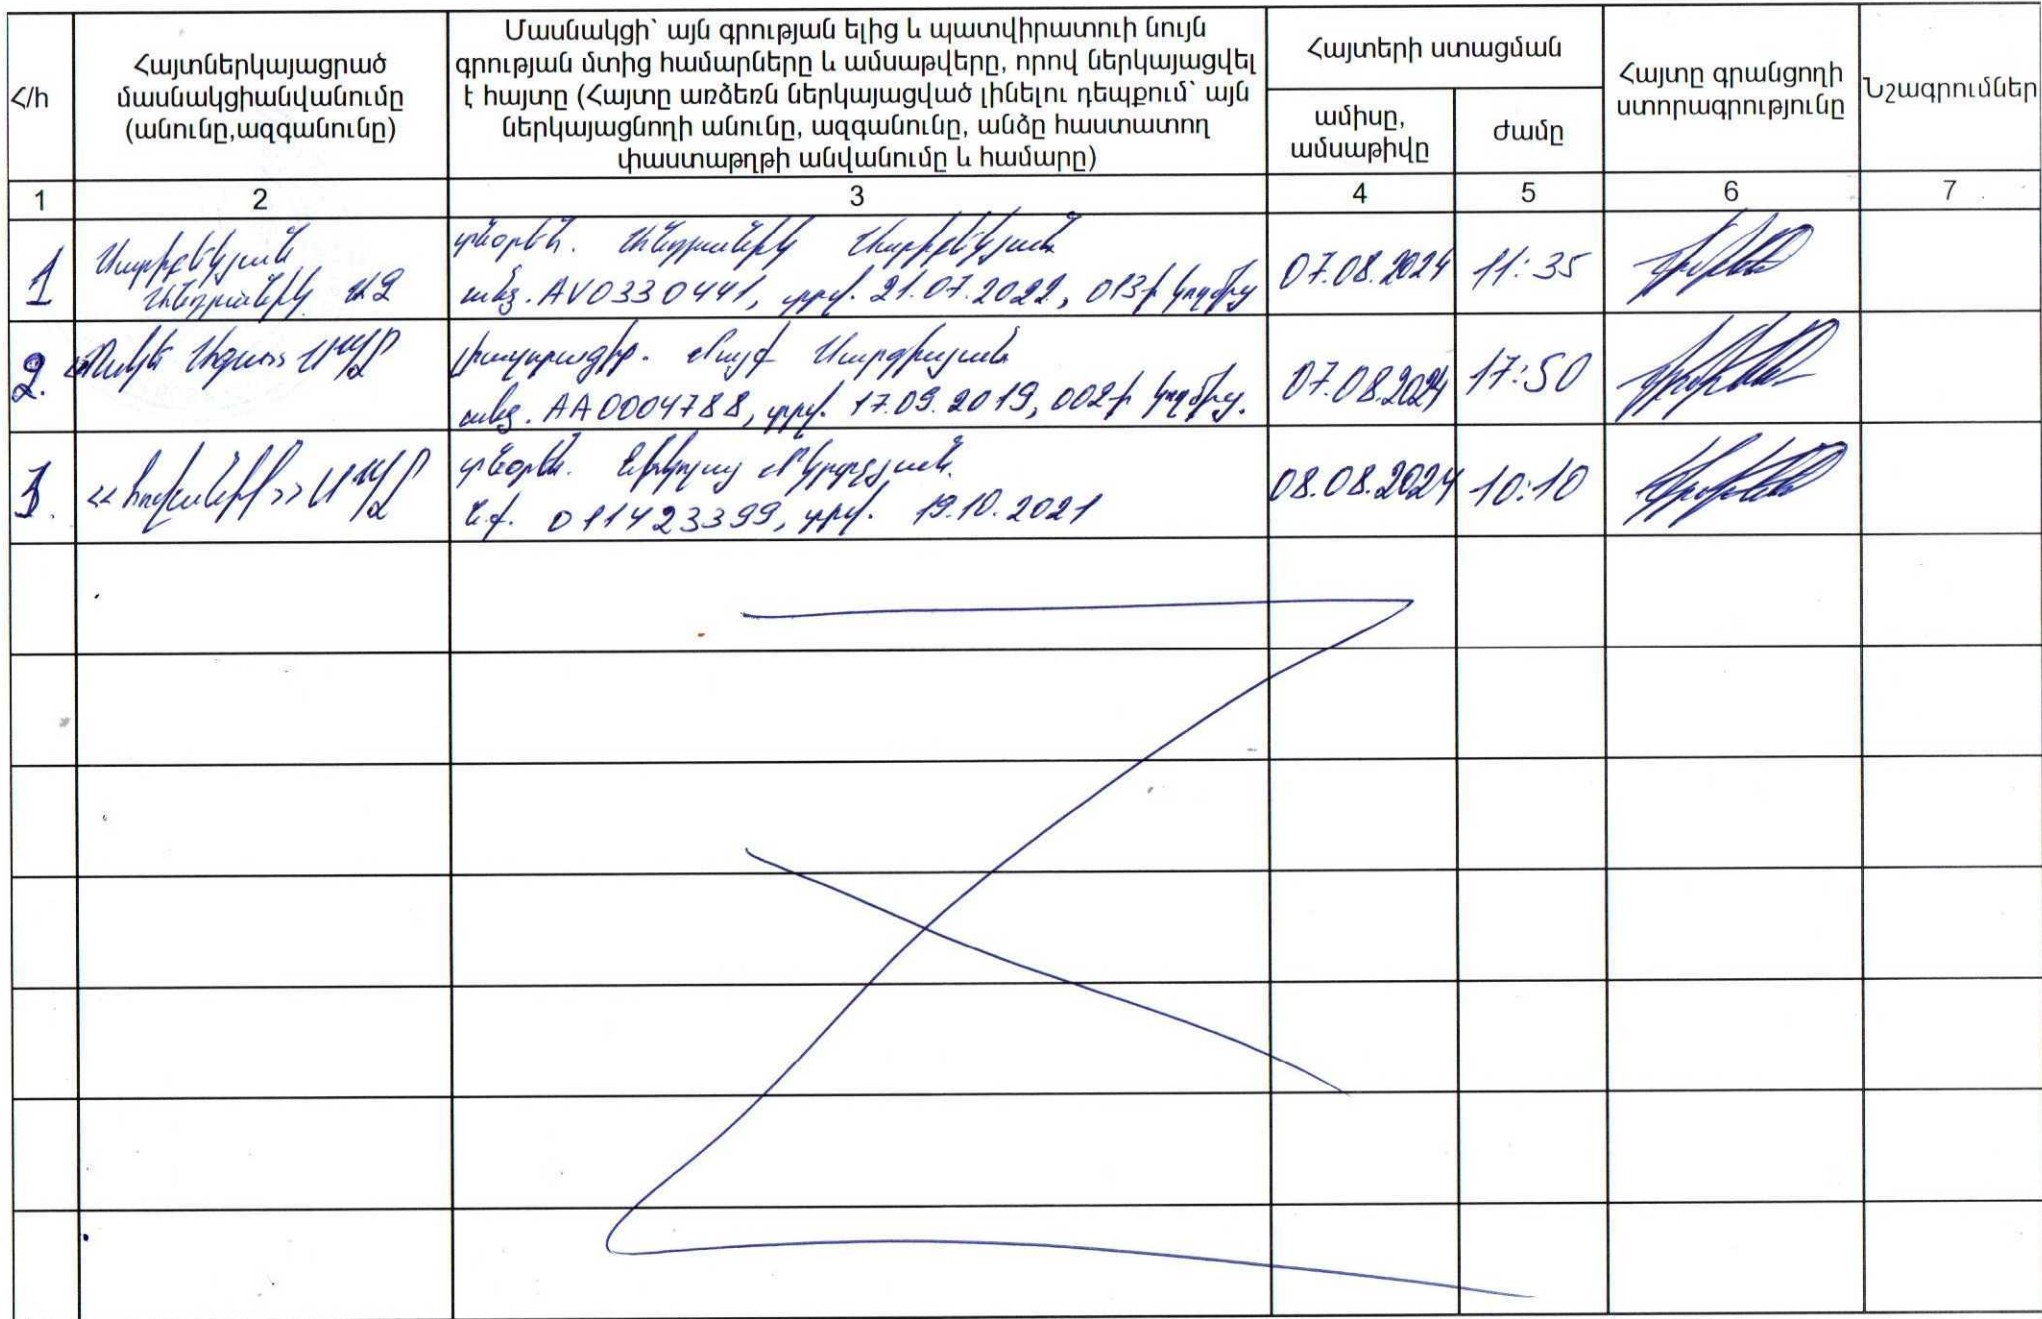 Հ/հ
Հայտներկայացրած
մասնակցիանվանումը
(անունը,ազգանունը)
Մասնակցի՝ այն գրության ելից և պատվիրատուի նույն
գրության մտից համարները և ամսաթվերը, որով ներկայացվել
է հայտը (Հայտը առձեռն ներկայացված լինելու դեպքում՝ այն
ներկայացնողի անունը, ազգանունը, անձը հաստատող
փաստաթղթի անվանումը և համարը)
Հայտերի ստացման
ամիսը,
ամսաթիվը
ժամը
Հայտը գրանցողի
ստորագրությունը
Նշագրումներ
1 2 3 4 5 6 7
1
Սարիբեկյան
Անդրանիկ ԱՁ
տնօրեն. Անդրանիկ Սարիբեկյան
անձ. AV0330441, տրվ. 21.07.2022, 013-ի կողմից
07.08.2024 11:35
2.
ՍՊԸ
լիազորագիր. Սարգսյան
անձ. AA0004788, տրվ. 17.09.2019, 002-ի կողմից.
07.08.2024 17:50
3.
<<Հովհանիկ>> ՍՊԸ
տնօրեն. Նիկոլայ Մկրտչյան.
Ն.Ք. 011423399, տրվ. 19.10.2021
08.08.2024 10:10